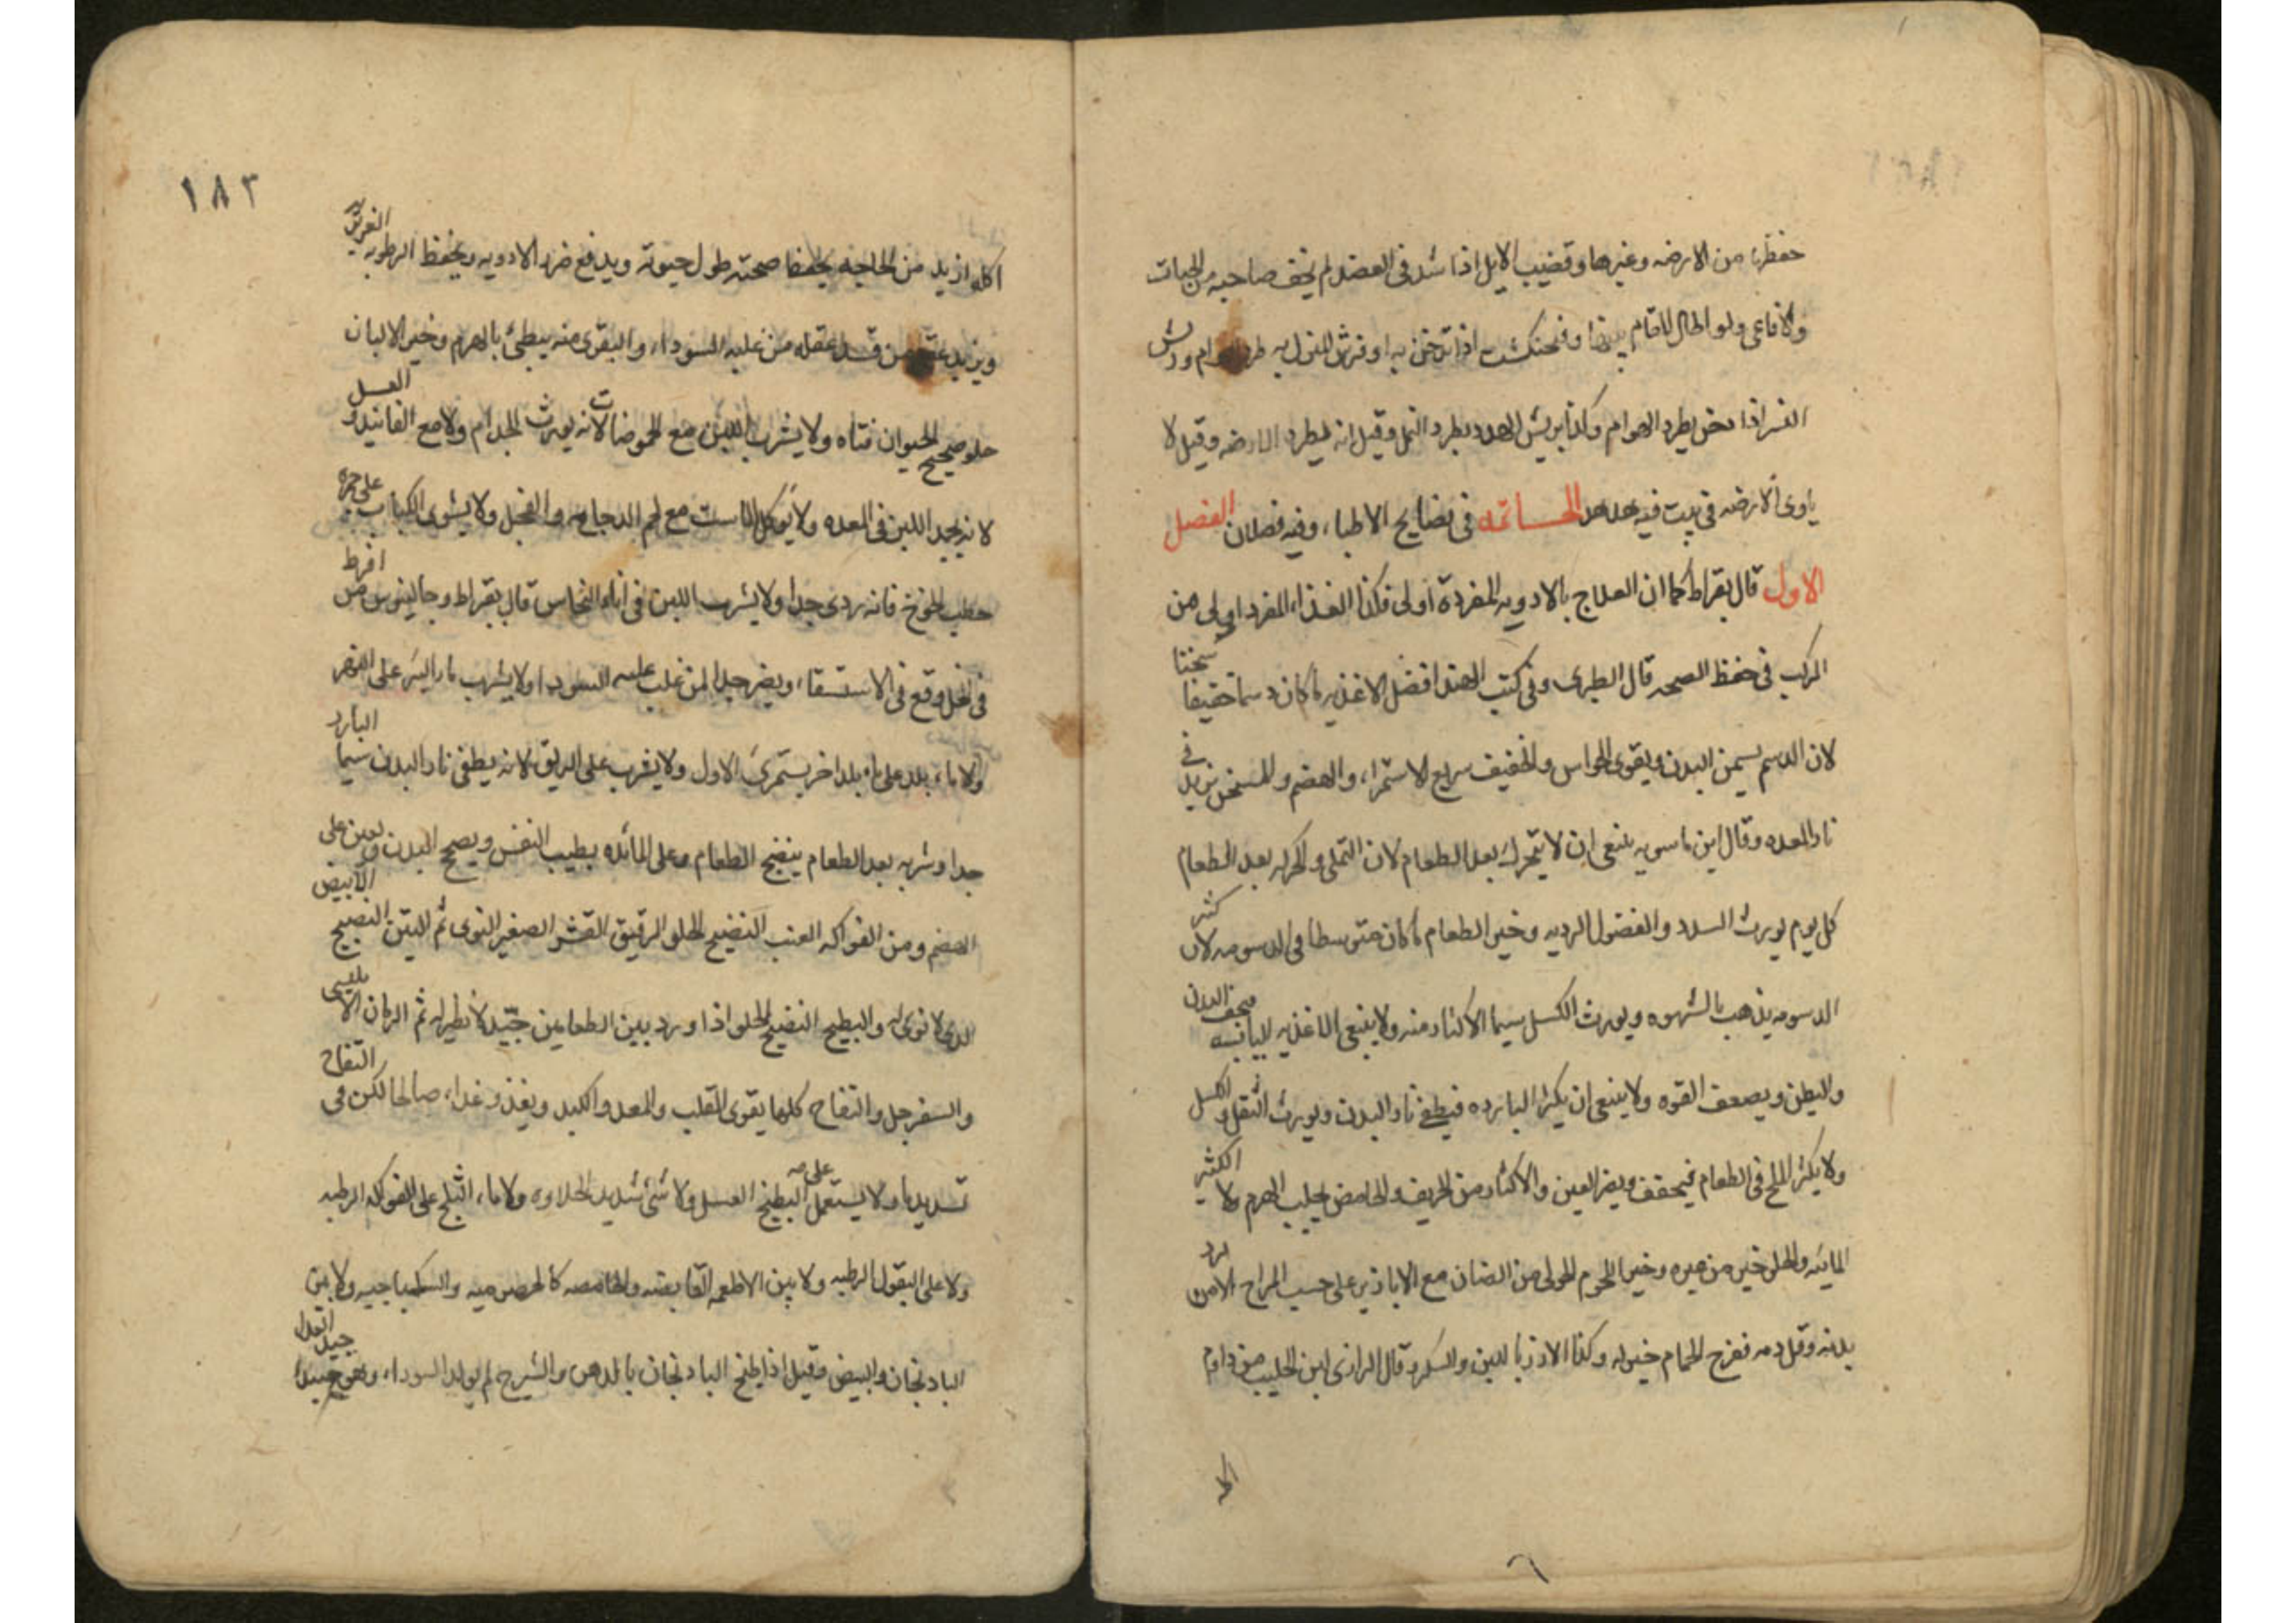 حفظها من الارضه وغيرها وقضيب الايل اذا شد فى العضد لم يخف صاحبه من الحيات
والافاعى ولو اطال المقام وفنجنكشت اذا تدخن به او فرش المنزل به طرد الهوام وريش
النسر اذا دخن يطرد الهوام وكذا بريش الهدهد يطرد النمل وقيل انه يطرد الارضه وقيل لا
ياوى الارضه فى بيت فيه هدهد الخاتمه فى نصايح الاطباء وفيه فصلان الفصل
الاول قال بقراط كما ان العلاج بالادويه المفردة اولى فكذا الغذاء المفرد اولى من
المركب فى حفظ الصحه قال الطبرى وفى كتب الهند افضل الاغذيه ما كان دسما خفيفا سخنا
لان الدسم يسمن البدن ويقوى الحواس والخفيف سريع الاستمراء والهضم والمسخن يزيد فى
نار المعده وقال ابن ماسويه ينبغى ان لا يتحرك بعد الطعام لان التملى والحركه بعد الطعام
كل يوم يورث السدد والفضول الرديه وخير الطعام ما كان متوسطا فى الدسومه لان كثير
الدسومه يذهب بالشهوه ويورث الكسل سيما الاكثار منه ولا ينبغى الاغذيه اليابسه مجفف البدن
والبطن ويضعف القوه ولا ينبغى ان يكثر البارده فيطفى نار البدن ويورث الثقل والكسل
ولا يكثر الملح فى الطعام فيجفف ويضر العين والاكثار من الحريف والحامض يجلب الهرم ولا الكثير
المائيه والحلو خير من غيره وخير اللحوم الحولى من الضان مع الابازير على حسب المزاج الا من برد
بدنه وقل دمه ففرخ الحمام خير له وكذا الارز باللبن والسكر وقال الرازى ابن الحليب من داوم
اكله ازيد من الحاجه يحفظ صحته طول حيوته ويدفع ضرر الادويه ويحفظ الرطوبه الغريزيه
ويزيد من غلبه السوداء والبقرى منه يبطئ بالهرم وخير الالبان
حلو صحيح الحيوان فتاه ولا يشرب اللبن مع الحموضات لانه يورث الجذام ولا مع الفانيد والعسل
لانه يجمد اللبن فى المعده ولا يؤكل الماست مع لحم الدجاجه والفجل ولا يشوى الكباب على جمره
حطب الخوخ فانه ردى جدا ولا يشرب اللبن فى اناء النحاس قال بقراط وجالينوس من افرط
فى الخل وقع فى الاستسقاء ويضر جدا لمن غلب عليه السوداء ولا يشرب ماء البئر على النهر
ولا ماء بلد على ماء بلد اخر يستمرئ الاول ولا يقرب على الريق لانه يطفى نار البدن سيما البارد
جدا وشربه بعد الطعام ينضج الطعام وعلى المائده يطيب النفس ويصح البدن ويعين على
الهضم ومن الفواكه العنب النضيج الحلو الرقيق القشر الصغير النوى ثم التين النضيج الابيض
الذى لا نوى له والبطيخ النضيج الحلو اذا ورد بين الطعامين جيد لا نظير له ثم الرمان الامليسى
والسفرجل والتفاح كلها يقوى القلب والمعده والكبد ويغذو غذاء صالحا لكن فى التفاح
تسديد ما ولا يستعمل على البطيخ العسل ولا شئ شديد الحلاوه ولا ماء الثلج على الفواكه الرطبه
ولا على البقول الرطبه ولا بين الاطعمه القابضه والحامضه كالحصرميه والسكباجيه ولا بين
الباذنجان والبيض وقيل اذا طبخ الباذنجان بالدهن والشيرج لم يولد السوداء وهو جيد الغذاء
١٨٣